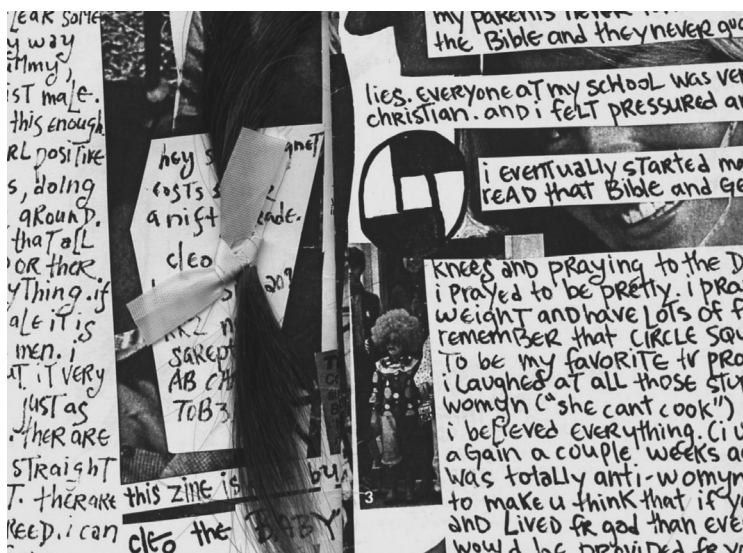 LEAK SOME
y way
ammy,
ST male.
this enough
RL positive
s, doing
around.
that all
or ther
ything. if
ale it is
men. i
T it very
just as
. ther are
straight
T. ther are
REED. i can
hey
costs
a nift
cleo
20
SAREPT
AB
TOB3
this zine is by
cleo the "BABY"
3
my parents never
the Bible and they never
lies. everyone at my school was ver
christian. and i felt pressured a
i eventually started m
read that Bible and Ge
knees and praying to the D
i prayed to be pretty. i pra
weight and have lots of f
remember that circle squ
to be my favorite tv pro
i laughed at all those stu
womyn ("she cant cook")
i believed everything. (i u
again a couple weeks a
was totally anti-womyn
to make u think that if y
and lived fr god than eve
would be provided fr y